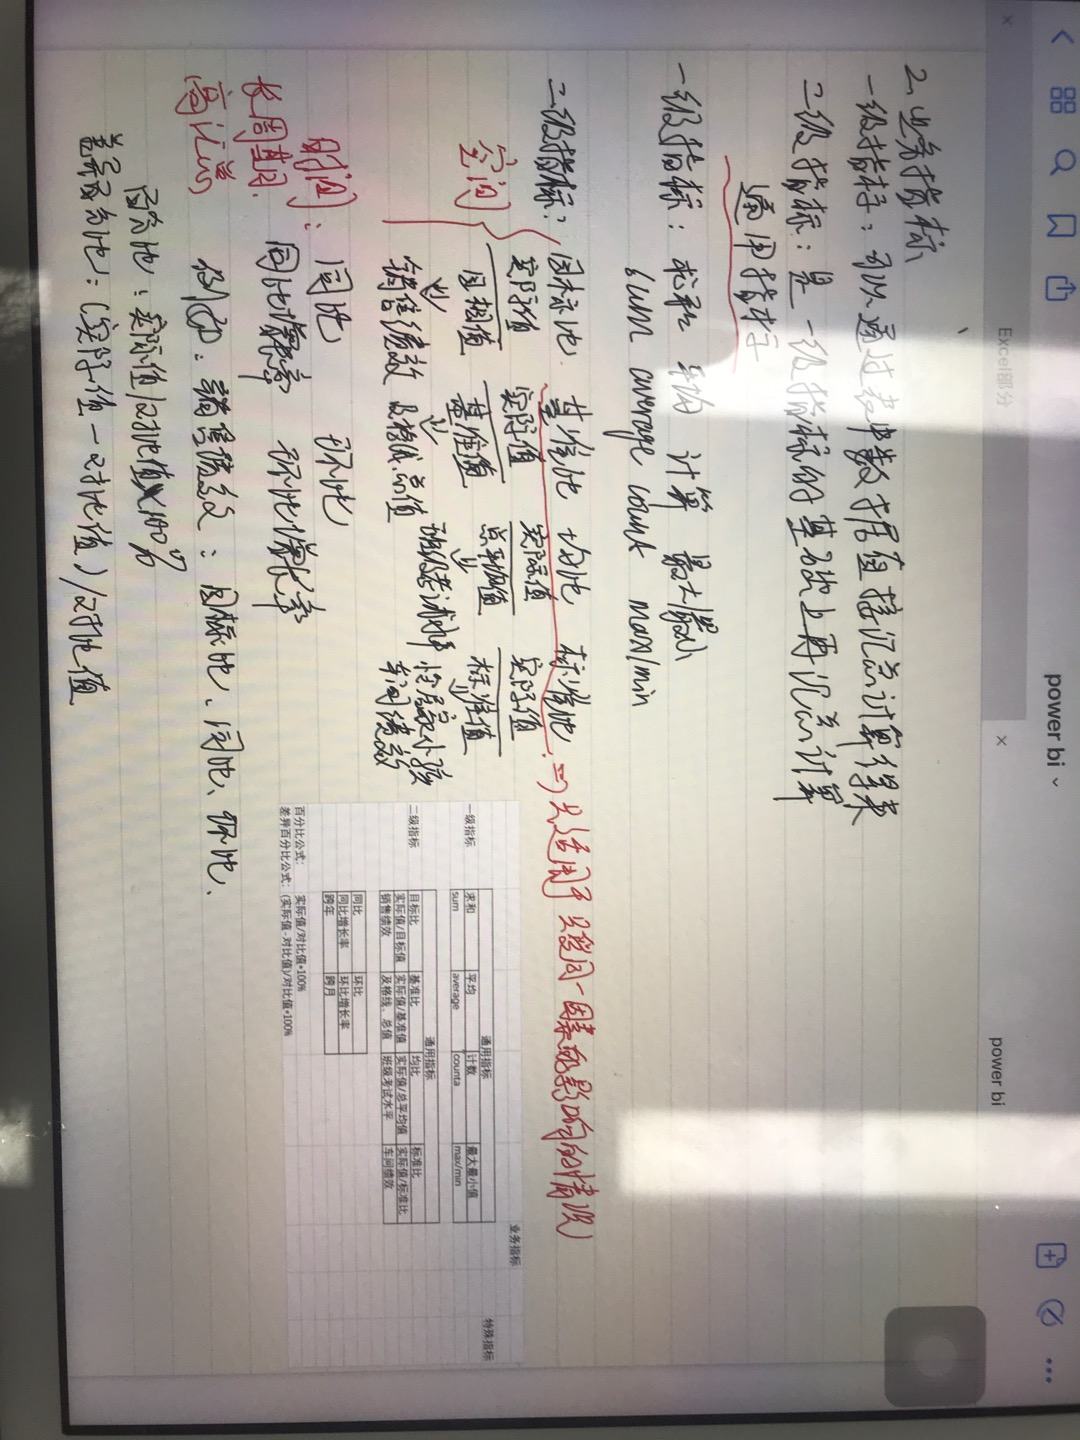 power bi
Excel部分
power bi
2、业务指标
一级指标：可以通过表中数据直接汇总计算得来
二级指标：是一级指标的基础上再汇总计算
通用指标
一级指标：求和 平均 计算 最大/最小
sum average count max/min
二级指标：目标比 基准比 均比 标准比 => 只适用于
空间
实际值 实际值 实际值 实际值
目标值 基准值 总平均值 标准值
销售绩效 及格线、总值 班级考试水平
车间绩效
时间：同比 环比
长周期 同比增长率 环比增长率
例如：销售绩效：目标比、同比、环比、
百分比：实际值/对比值×100%
差异百分比：(实际值-对比值)/对比值
业务指标
通用指标
特殊指标
一级指标
求和 平均 计数 最大最小值
sum average counta max/min
通用指标
二级指标
目标比 基准比 均比 标准比
实际值/目标值 实际值/基准值 实际值/总平均值 实际值/标准比
销售绩效 及格线、总值 班级考试水平 车间绩效
同比 环比
同比增长率 环比增长率
跨年 跨月
百分比公式： 实际值/对比值*100%
差异百分比公式：(实际值-对比值)/对比值*100%